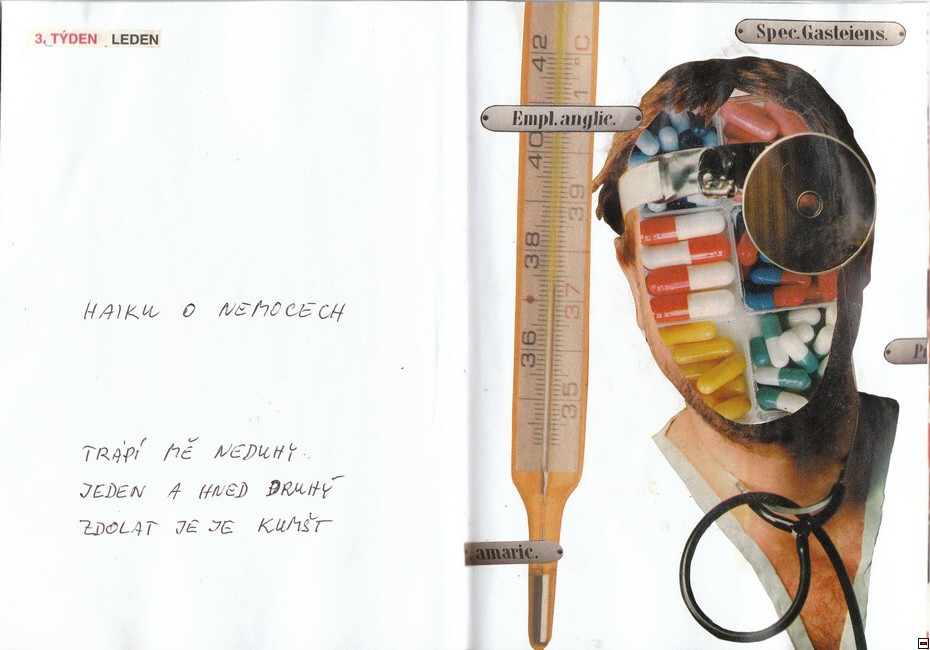 3. TÝDEN LEDEN
HAIKU O NEMOCECH
TRÁPÍ MĚ NEDUHY
JEDEN A HNED DRUHÝ
ZDOLAT JE JE KUMŠT
Spec. Gasteiens.
Empl. anglic.
amaric.
42
°C
40
39
38
37
36
35